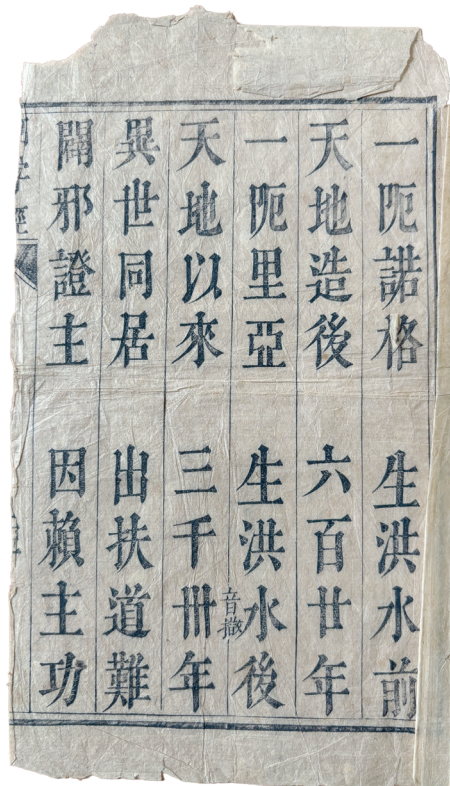 一阨諾格 生洪水前
天地造後 六百廿年
一阨里亞 生洪水後
天地以來 三千卅年
音撒
異世同居 出扶道難
闢邪證主 因賴主功